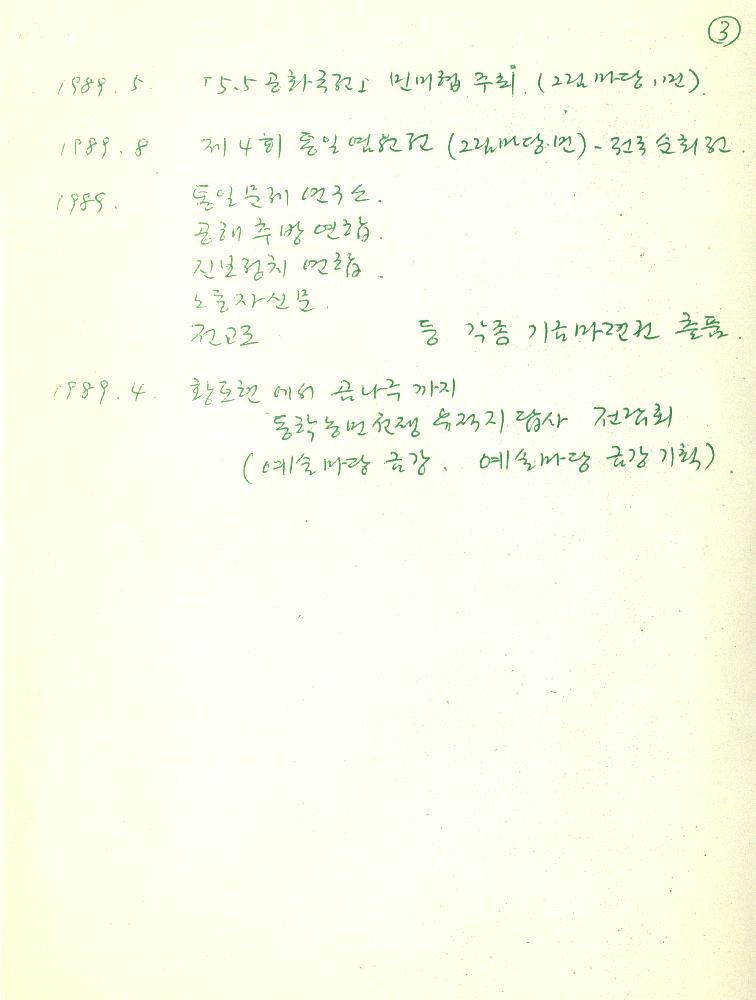 ③
1989. 5. 「5.5 공화국전」 민미협 주최. (그림마당.민).
1989. 8 제 4회 통일염원전 (그림마당.민) - 전국 순회전.
1989. 통일문제 연구소.
공해 추방 연합.
진보정치 연합.
노동자신문.
전교조 등 각종 기금마련전 출품.
1989. 4. 황토현에서 곰나루까지
동학농민전쟁 유적지 답사 전람회
(예술마당 금강. 예술마당 금강 기획).